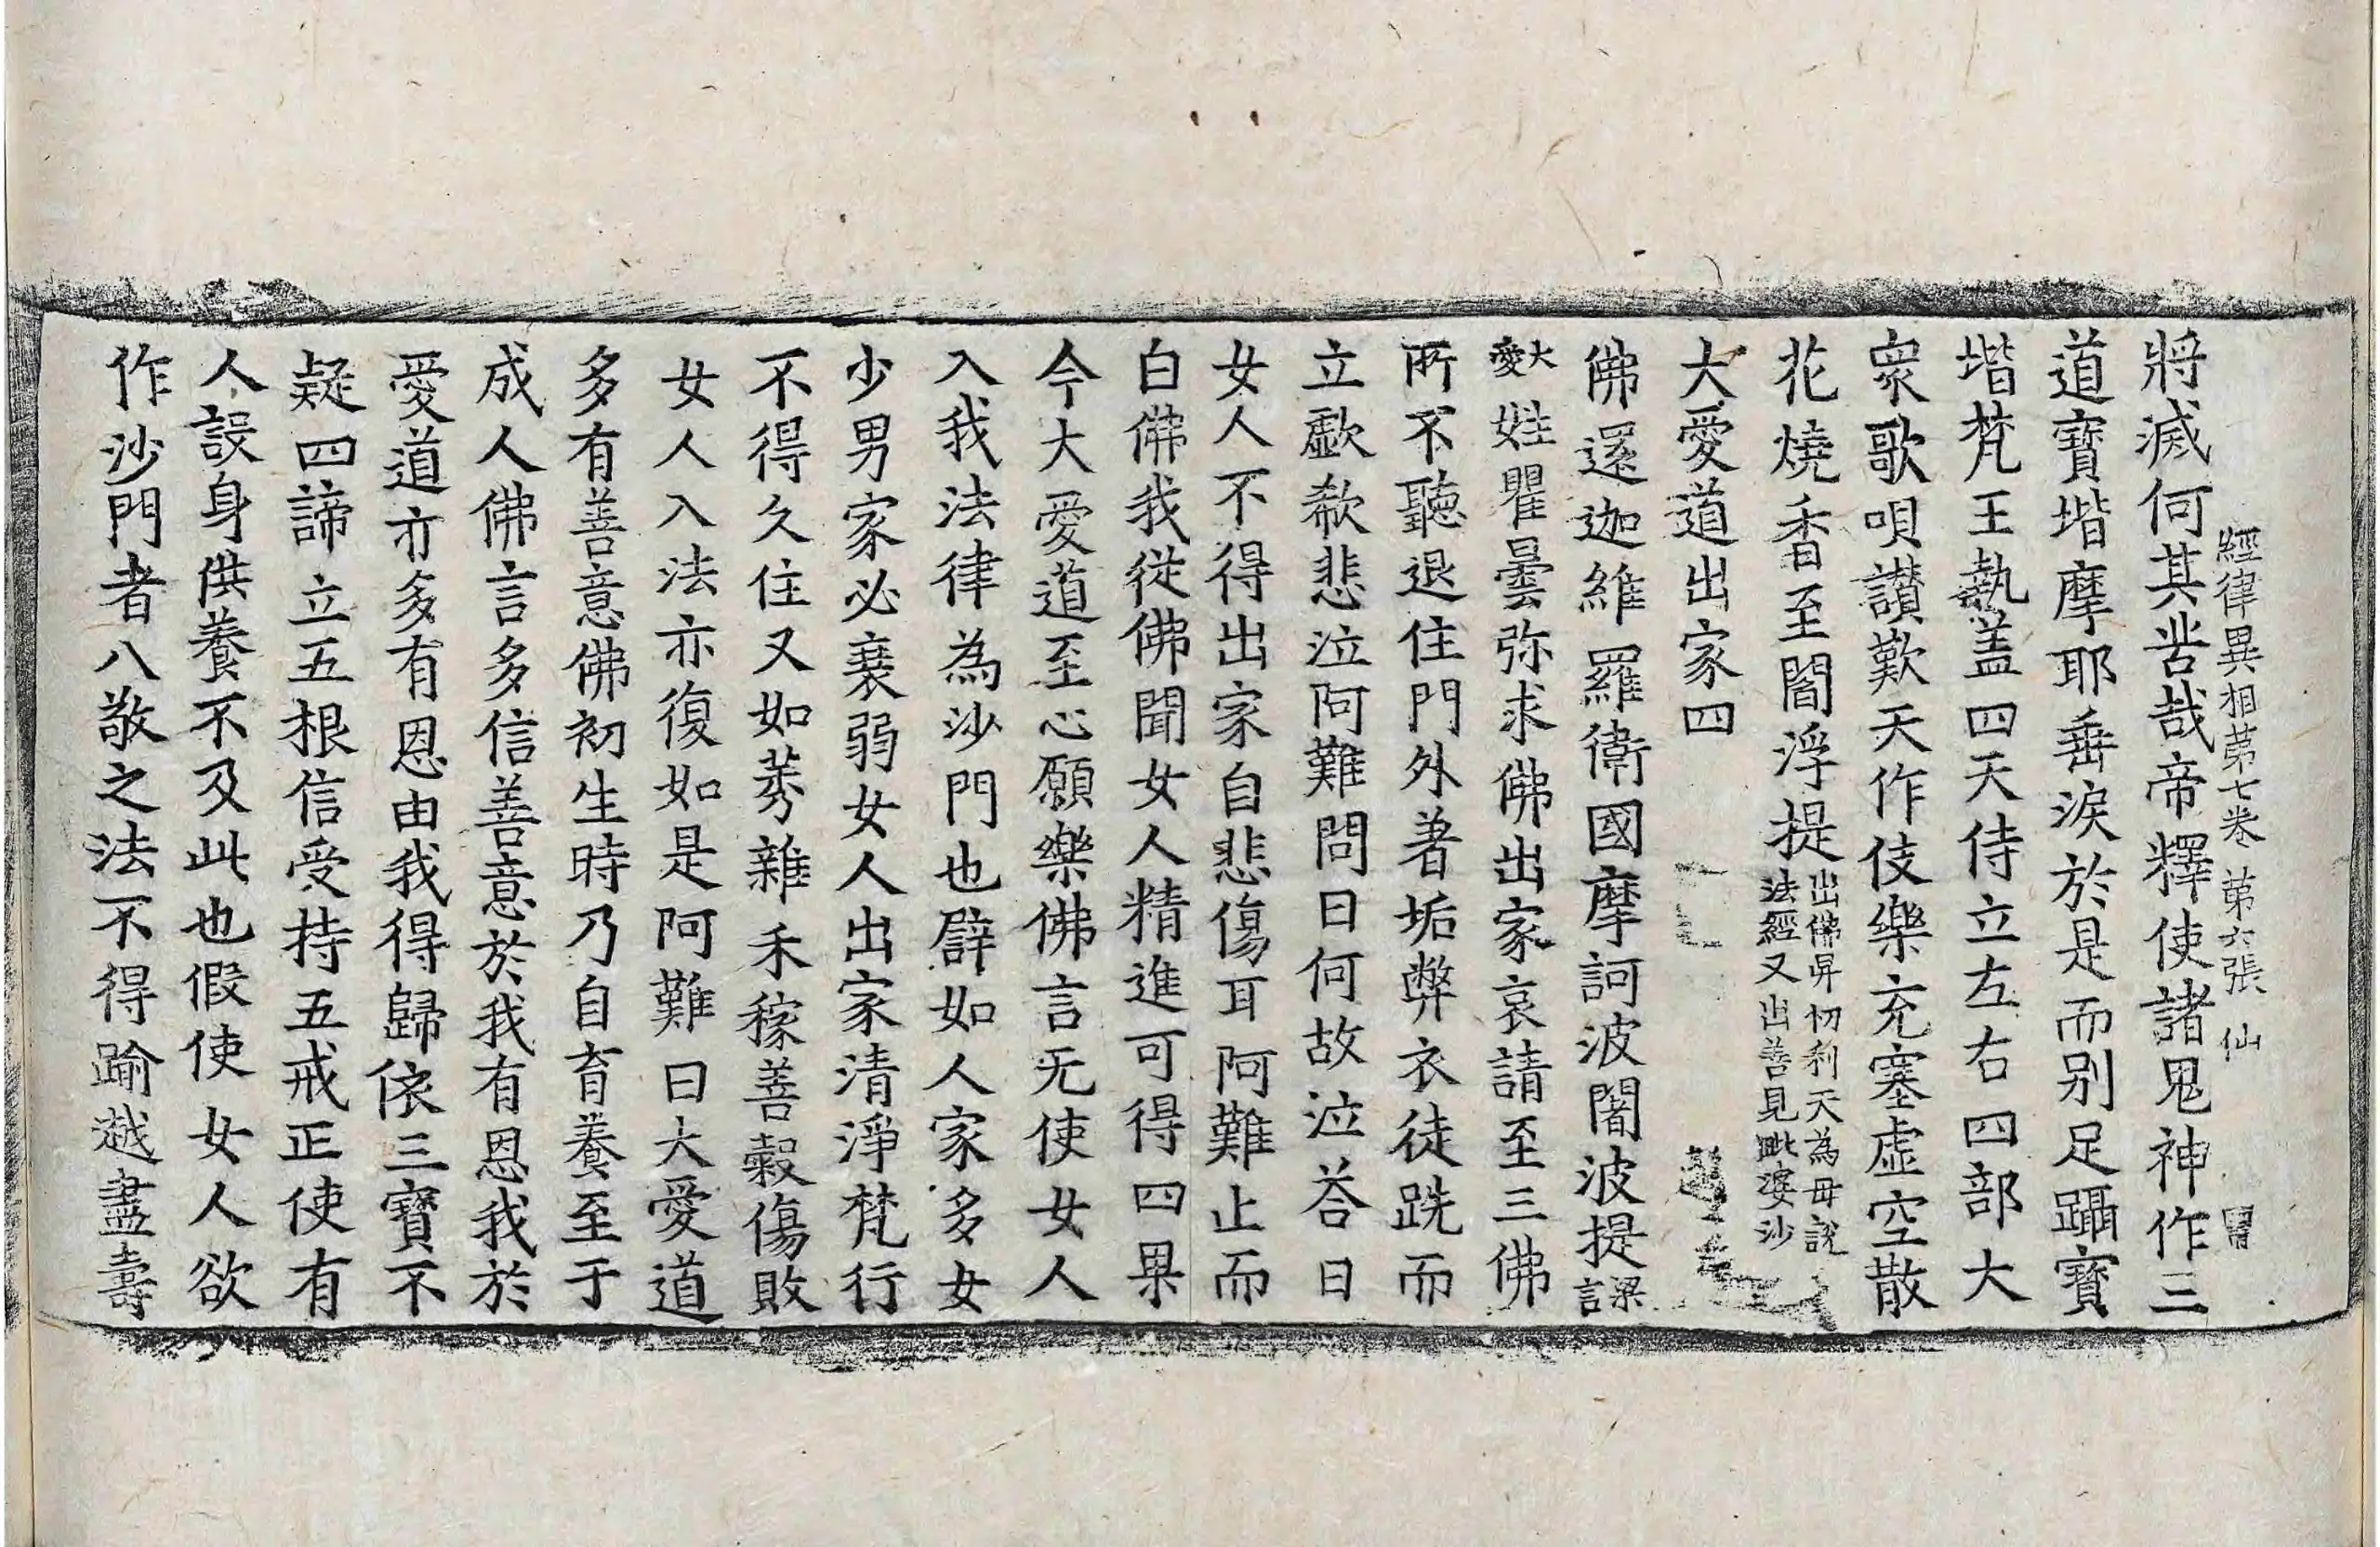 經律異相苐七卷 苐六張 仙
將滅何其苦哉帝釋使諸鬼神作三
道寶堦摩耶垂淚於是而別足躡寶
堦梵王執盖四天侍立左右四部大
衆歌唄讃歎天作伎樂充塞虛空散
花燒香至閻浮提出佛昇忉利天為毋說法經又出善見毗婆沙
大愛道出家四
佛還迦維羅衛國摩訶波闍波提梁言
大愛姓瞿曇弥求佛出家哀請至三佛
所不聽退住門外著垢弊衣徒跣而
立歔欷悲泣阿難問曰何故泣荅曰
女人不得出家自悲傷耳阿難止而
白佛我從佛聞女人精進可得四果
今大愛道至心願樂佛言无使女人
入我法律為沙門也譬如人家多女
少男家必衰弱女人出家清淨梵行
不得久住又如莠雜禾稼善穀傷敗
女人入法亦復如是阿難曰大愛道
多有善意佛初生時乃自育養至于
成人佛言多信善意於我有恩我於
愛道亦多有恩由我得歸依三寶不
疑四諦立五根信受持五戒正使有
人設身供養不及此也假使女人欲
作沙門者八敬之法不得踰越盡壽